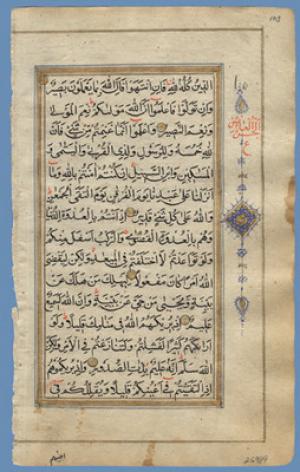 الدِّينُ كُلُّهُ لِلَّهِ فَإِنِ انْتَهَوْا فَإِنَّ اللَّهَ بِمَا يَعْمَلُونَ بَصِيرٌ
وَإِنْ تَوَلَّوْا فَاعْلَمُوا أَنَّ اللَّهَ مَوْلَىٰكُمْ نِعْمَ الْمَوْلَى
وَنِعْمَ النَّصِيرُ وَاعْلَمُوا أَنَّمَا غَنِمْتُمْ مِنْ شَيْءٍ فَأَنَّ
لِلَّهِ خُمُسَهُ وَلِلرَّسُولِ وَلِذِي الْقُرْبَى وَالْيَتَمَى وَ
الْمَسَكِينِ وَابْنِ السَّبِيلِ إِنْ كُنْتُمْ آمَنْتُمْ بِاللَّهِ وَمَا
أَنْزَلْنَا عَلَى عَبْدِنَا يَوْمَ الْفُرْقَنِ يَوْمَ الْتَقَى الْجَمْعَنِ
وَاللَّهُ عَلَى كُلِّ شَيْءٍ قَدِيرٌ إِذْ أَنْتُمْ بِالْعُدْوَةِ الدُّنْيَا
وَهُمْ بِالْعُدْوَةِ الْقُصْوَى وَالرَّكْبُ أَسْفَلَ مِنْكُمْ
وَلَوْ تَوَاعَدْتُمْ لَاخْتَلَفْتُمْ فِي الْمِيعَدِ وَلَكِنْ لِيَقْضِيَ
اللَّهُ أَمْرًا كَانَ مَفْعُولًا لِيَهْلِكَ مَنْ هَلَكَ عَنْ
بَيِّنَةٍ وَيَحْيَى مَنْ حَيَّ عَنْ بَيِّنَةٍ وَإِنَّ اللَّهَ لَسَمِيعٌ
عَلِيمٌ إِذْ يُرِيكَهُمُ اللَّهُ فِي مَنَامِكَ قَلِيلًا وَلَوْ
أَرَاكَهُمْ كَثِيرًا لَفَشِلْتُمْ وَلَتَنَازَعْتُمْ فِي الْأَمْرِ وَلَكِنَّ
اللَّهَ سَلَّمَ إِنَّهُ عَلِيمٌ بِذَاتِ الصُّدُورِ وَإِذْ يُرِيكُمُوهُمْ
إِذِ الْتَقَيْتُمْ فِي أَعْيُنِكُمْ قَلِيلًا وَيُقَلِّلُكُمْ فِي